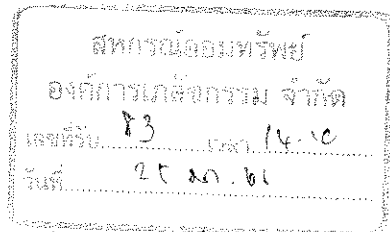 สหกรณ์ออมทรัพย์
องค์การเภสัชกรรม จำกัด
เลขที่รับ 83 เวลา 14.10
วันที่ 25 มค. 61